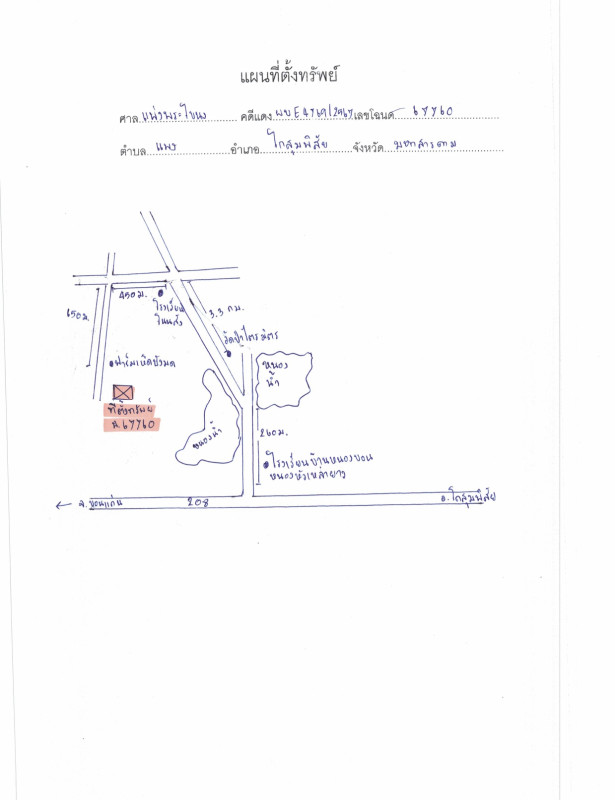 แผนที่ตั้งทรัพย์
ศาล แพ่งพระโขนง คดีแดง ผบE4769/2967 เลขโฉนด 67760
ตำบล แพง อำเภอ โกสุมพิสัย จังหวัด มหาสารคาม
450 ม.
650 ม.
โรงเรียน
3.3 กม.
วัดป่าไตรมิตร
หนอง
น้ำ
ที่ตั้งทรัพย์
ฉ.67760
หนองน้ำ
260 ม.
โรงเรียนบ้านหนองบอน
หนองหัวเหล่ายาว
← จ.ขอนแก่น 208 อ.โกสุมพิสัย